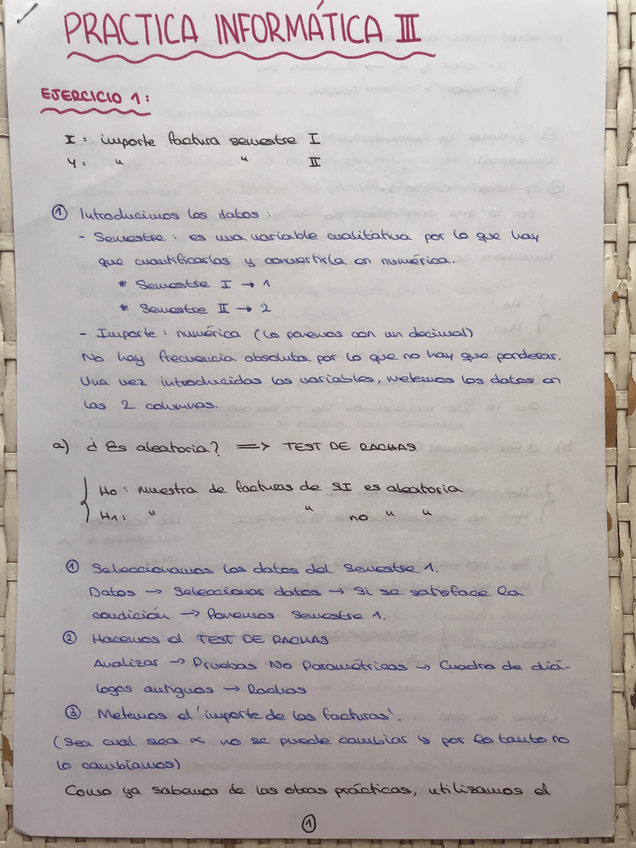 PRACTICA INFORMÁTICA III
EJERCICIO 1:
I : importe factura semestre I
Y : " " II
① Introducimos los datos :
- Semestre : es una variable cualitativa por lo que hay
que cuantificarlas y convertirla en numérica.
* Semestre I → 1
* Semestre II → 2
- Importe : numérica (lo ponemos con un decimal)
No hay frecuencia absoluta por lo que no hay que ponderar.
Una vez introducidas las variables, metemos los datos en
las 2 columnas.
a) ¿ Es aleatoria? => TEST DE RACHAS
H0 : muestra de facturas de SI es aleatoria
H1 : " " no " "
① Seleccionamos los datos del Semestre 1.
Datos → Seleccionar datos → Si se satisface la
condición → Ponemos Semestre 1.
② Hacemos el TEST DE RACHAS
Analizar → Pruebas No Paramétricas → Cuadro de diá-
logos antiguos → Rachas
③ Metemos el 'importe de las facturas'.
(Sea cual sea ∝ no se puede cambiar y por lo tanto no
lo cambiamos)
Como ya sabemos de las otras prácticas, utilizamos el
①